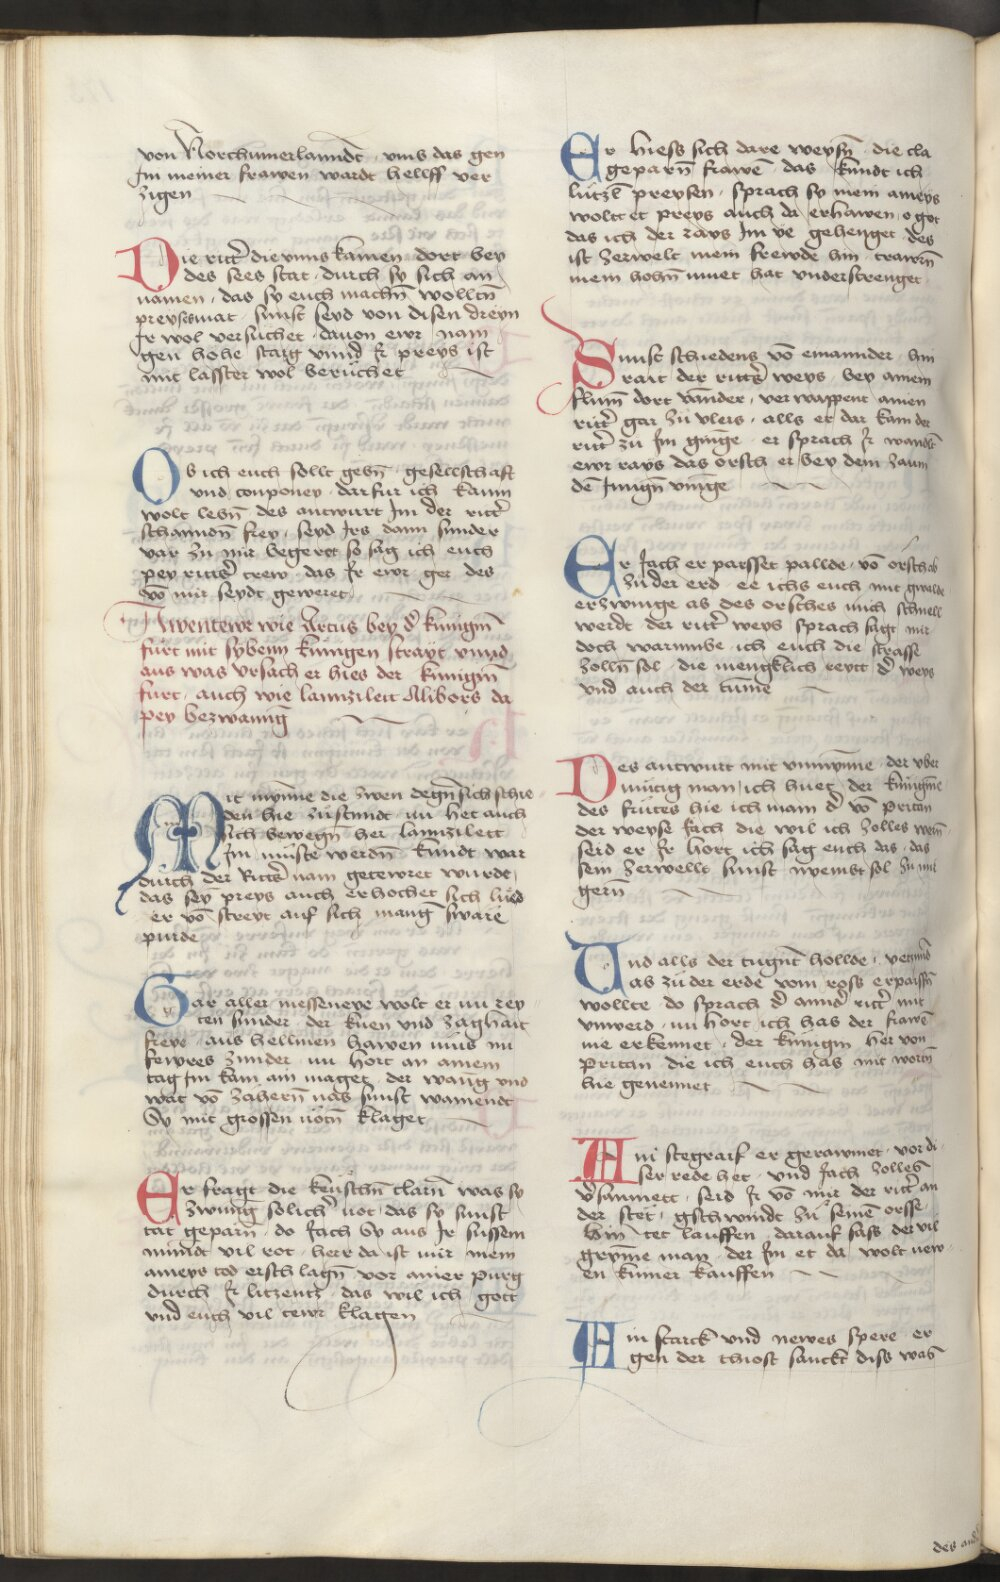 von Norchumerlanndt · umb das gen
Im meiner frawen wardt hellff ver
zigen
Die ritt̃ die unns kamen · dort bey
des sees stat · durch sy sich an
namen · das sy euch machñ wolltñ
preyses mat · sunst seyd von disen dreyn
Ir wol versuchet · davon ewr nam
gen hohe staig unnd Ir preys ist
mit lasster wol beruchet
Ob ich euch sollt gebñ · gesellschaft
und conponey · darfur ich kaum
wolt lebñ des antwurt Im der ritt̃
schanndñ frey · seyd Irs dann sunder
var zu mir begeret so sag ich euch
pey ritt̃s trew · das Ir ewr ger des
võ mir seydt geweret
Awentewr wie Artus bey d̃ kunigin
furt mit sybenn kunigen strayt unnd
aus was ursach er hies der kunigin
furt · auch wie lannzilett Alibors da
pey bezwanng
Mit mynne die zwen degñ sich schie
den hie zustundt · nu het auch
sich bewegñ her lannzilett
Im muste werdñ kundt war
durch der Ritt̃s nam getewret wurde ·
das sey preys auch erhochet sich lued
er võ streyt auf sich mang̃ sware
purde
Gar aller messeneye wolt er nu rey
ten sunder · der kuen und zaghait
freye · aus hellmen hawen uns nu
fewres zunder · nu hort an ainem
tag Im kam ain maget · der wang und
wat võ zahern̄ nas sunst wainendt
Sy mit grossen notñ klaget
Er fragt die keuschñ clarñ was sy
zwung solich̃ not · das sy sunst
tat geparñ · do Jach Sy aus Ir sussem
mundt vil rot · herr da ist mir mein
ameys tod erschlagñ vor ainer purg
durch Ir litzentz · das wil ich gott
und euch vil tewr klagen
Er hiess sich dare weysñ · die cla
geparñ frawẽ · das kundt ich
lutzl preysen · sprach sy mein ameys
wolt et preys auch da erhawen · o got
das ich der rays Im ye gehenget des
ist zerwelt mein frewde hin · trawrñ
mein hohñ muet hat understrenget ·
Sunst schiedens võ einannder · hin
rait der ritt̃ weys · bey ainem
flumm dort vander · verwappent ainen
ritt̃ gar zu vleis · alls er dar kam der
ritt̃ zu Im ginge · er sprach Ir wandlt
ewr rays das orsch er bey dem zaum
dẽ Jungñ vinge
Er Jach er paysset pallde · võ orsch ab
zu der erd · ee ichs euch mit gwalde
erzwinge ab des orsches mich schnell
werdt der ritt̃ weys sprach sagt mir
doch warumbe ich euch die strasse
zollñ sol · die mengklich reytt d̃ weys
und auch der tume
Des antwurt mit unmynne · der uber
mutig man / ich huet · der kunigine
des furtes hie ich main d̃ võ pritan
der weyse Jach die wil ich zolles wern
seid er Ir hort ich sag euch das · das
sein zerwellt sunst nyembt sol zu mit
gern̄
Und alls der tugñt hollde · verstund
as zu der erde vom ross erpaissñ
wollte do sprach d̃ annd̃ ritt̃ mit
unwerd · nu hort ich has der frawẽ
nie erkennet · der kunigin her von
Pritan die ich euch has mit worñ
hie genennet
An stegraif er gerawmet · vor di
ser rede het · und Jach zolles
v̄sawmett · seid Ir võ mir der ritt̃ an
der stet · gschwindt zu seinẽ orsse
hin tet lauffen · darauf sass der vil
gryme man · der Im et da wolt new
en kumer kauffen
Ain starck und newes spere · er
gen der thiost sanckt diss was
des and̃